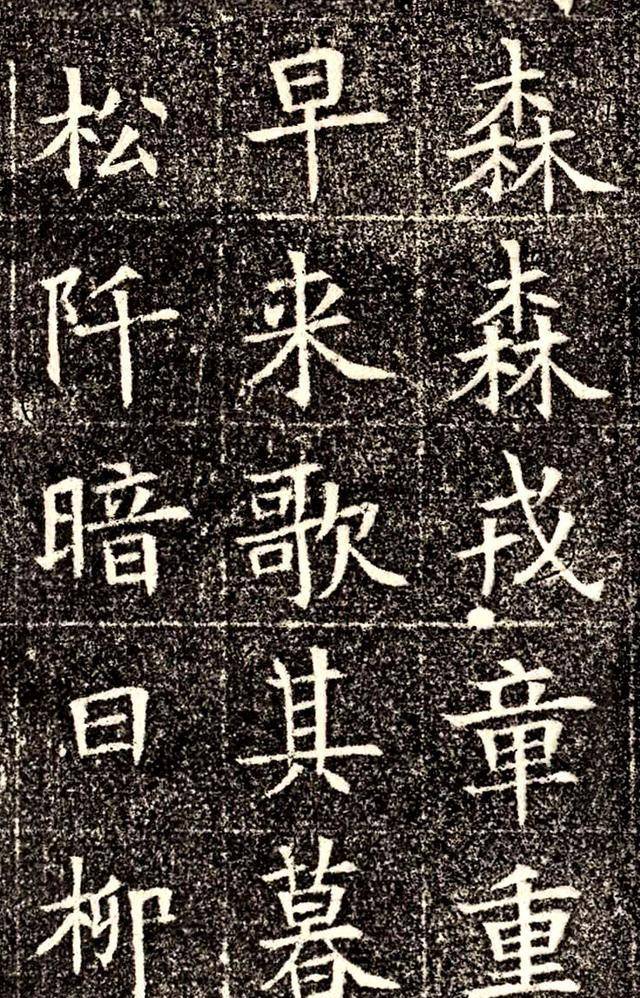 森森戎章重
早来歌其暮
松阡暗日柳